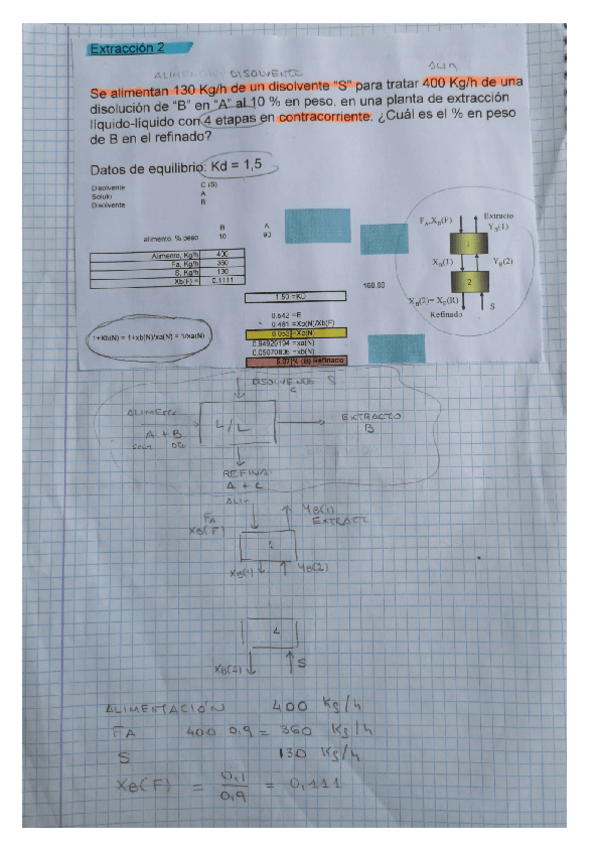 Extracción 2
DISOLVENTE
Se alimentan 130 Kg/h de un disolvente "S" para tratar 400 Kg/h de una
disolución de "B" en "A" al 10 % en peso, en una planta de extracción
líquido-líquido con 4 etapas en contracorriente. ¿Cuál es el % en peso
de B en el refinado?
Datos de equilibrio: Kd = 1,5
Disolvente C (S)
Soluto A
Disolvente B
B A
alimento, % peso 10 90
Alimento, Kg/h 400
Fa, Kg/h 360
S, Kg/h 130
Xb(F) = 0.1111
160.00
1.50 =KD
0.542 =E
0.481 =Xb(N)/Xb(F)
=Xb(N)
=xa(N)
=xb(N)
% (B) Refinado
1+Xb(N) = 1+xb(N)/xa(N) = 1/xa(N)
FA,XB(F) Extracto
YB(1)
1
XB(1) YB(2)
2
XB(2)= XB(R) S
Refinado
DISOLVENTE S
C
ALIMENTO
A + B
L/L
EXTRACTO
B
REFINA
A + C
FA
XB(F)
YB(1)
EXTRACT
1
XB(1) YB(2)
XB(2) S
ALIMENTACIÓN 400 Kg/h
FA 400 0,9 = 360 Kg/h
S 130 Kg/h
XB(F) = 0,1 / 0,9 = 0,111